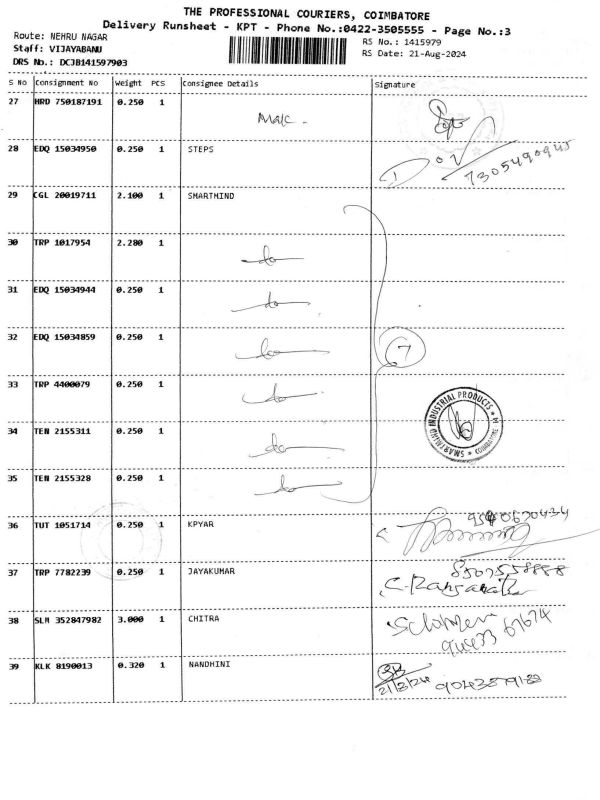 THE PROFESSIONAL COURIERS, COIMBATORE
Delivery Runsheet - KPT - Phone No.:0422-3505555 - Page No.:3
Route: NEHRU NAGAR
RS No.: 1415979
Staff: VIJAYABANU
RS Date: 21-Aug-2024
DRS No.: DCJB141597903
S No Consignment No Weight PCS Consignee Details Signature
27 HRD 750187191 0.250 1
28 EDQ 15034950 0.250 1 STEPS
7305490945
29 CGL 20019711 2.100 1 SMARTMIND
30 TRP 1017954 2.280 1 do
31 EDQ 15034944 0.250 1 do
32 EDQ 15034859 0.250 1 do
7
33 TRP 4400079 0.250 1 do
34 TEN 2155311 0.250 1 do
INDUSTRIAL PRODUCTS
COIMBATORE
35 TEN 2155328 0.250 1 do
36 TUT 1051714 0.250 1 KPYAR
37 TRP 7782239 0.250 1 JAYAKUMAR
38 SLM 352847982 3.000 1 CHITRA
39 KLK 8190013 0.320 1 NANDHINI
21/8/24